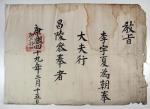 教旨
李宇夏爲朝奉
大夫行
昌陵叅奉者
康熙四十九年三月十五日